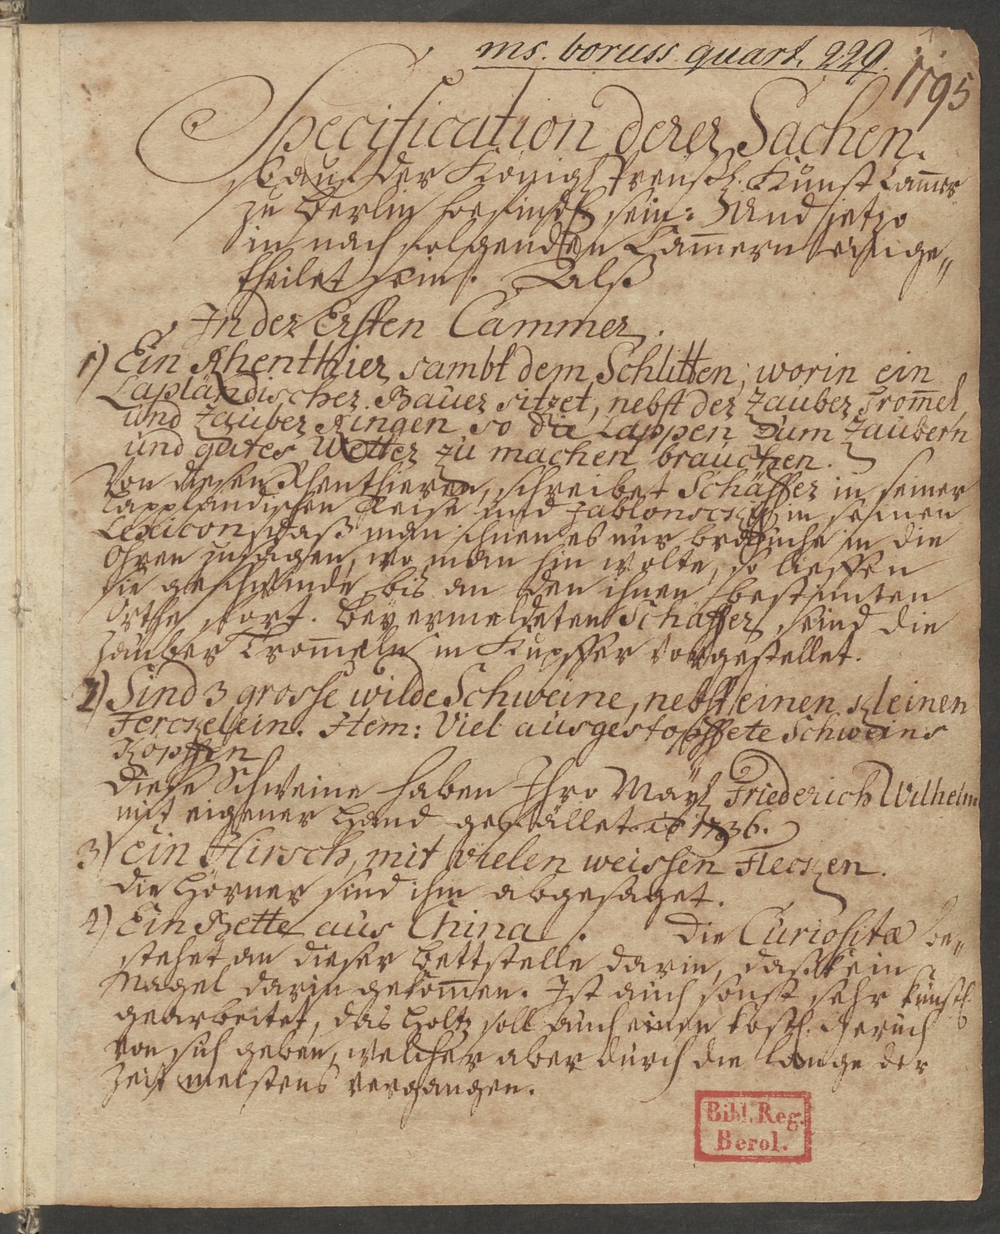 ms. boruss. quart. 229.
1
1795
Specification derer Sachen.
so auf der Königl. Preusch. Kunst Cam̄er
zu Berlin befindl. sein: Und jetzo
in nach folgenden Cam̄ern einge„
theilet sein. Alß
In der Ersten Cammer.
1) Ein Rhenthier sambt dem Schlitten, worin ein
Lapländischer Bauer sitzet, nebst der Zauber Trom̄el,
und Zauber Ringen so die Lappen zum Zaubern
und gutes Wetter zu machen brauchen.
Von diesen Rhenthieren, schreibet Schäffer in seiner
Lappländischen Reise und Jablonocky in seinen
Lexicon, daß man ihnen es nur brauche in die
Ohren zu sagen, wo man hin wolte, so lieffen
sie geschwinde bis an den ihnen bestim̄ten
Orthe fort. Bey ermeldeten Schäffer, seind die
Zauber Trom̄eln in Kupffer vorgestellet.
2) Sind 3 grosse wilde Schweine, nebst einen kleinen
Ferckelein. Item: Viel ausgestopffete Schweins
Kopffen
Diese Schweine haben Ihro Mayt. Friederich Wilhelm
mit eigener Hand gefället 1736.
3) ein Hirsch, mit vielen weissen Flecken.
die Hörner sind ihm abgesaget.
4) Ein Bette aus China. Die Curiositæ be„
stehet an dieser Bettstelle darin, daß kein
Nagel darin gekom̄en. Ist auch sonst sehr künstl.
gearbeitet, das Holtz soll auch einen köstl. Geruch
von sich geben, welcher aber durch die Länge der
Zeit meistens vergangen.
Bibl. Reg.
Berol.